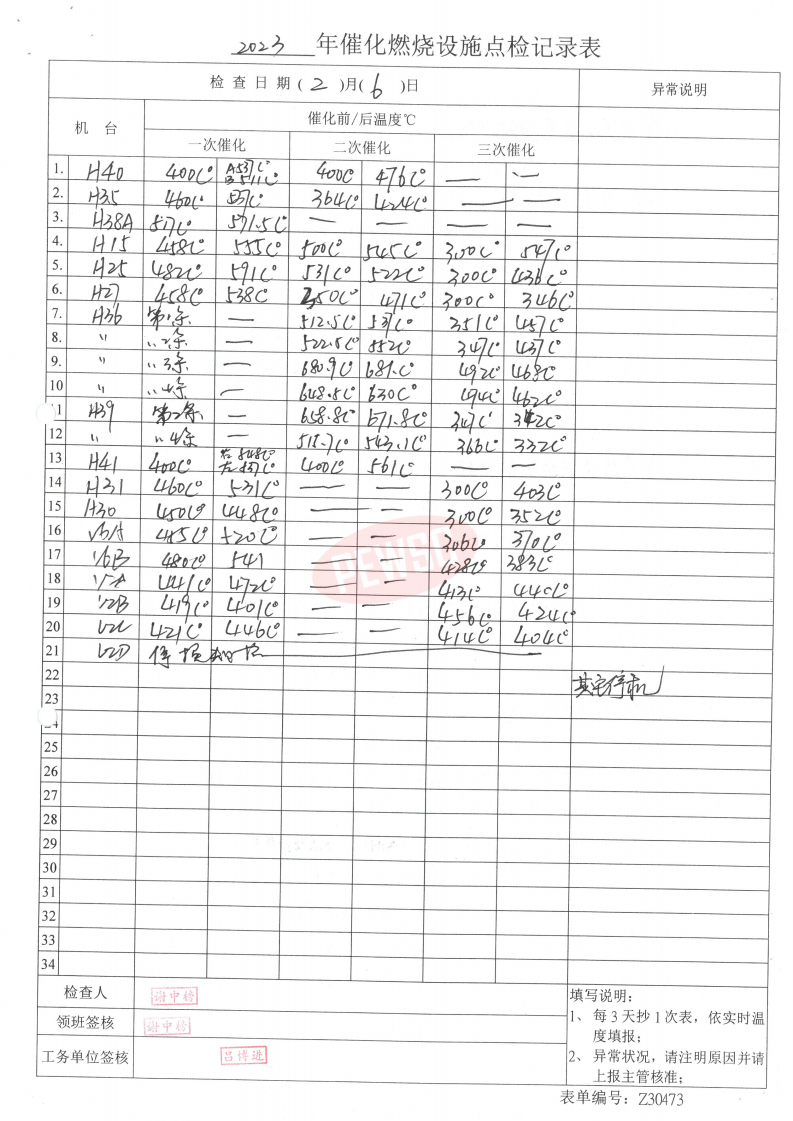 2023 年催化燃烧设施点检记录表
检查日期(2)月(6)日 异常说明
机台 催化前/后温度℃
一次催化 二次催化 三次催化
1. H40 400C° A537C° B511C° 400C 476C° — —
2. H35 460C° 537C° 364C° 424C° — —
3. H38A 517C° 571.5C° — — — —
4. H15 458C° 555C° 500C° 545C° 300C° 547C°
5. H25 482C° 591C° 531C° 522C° 300C° 436C°
6. H27 458C° 538C° 350C° 471C° 300C° 346C°
7. H36 — 512.5C° 537C° 351C° 457C°
8. " "2条 — 522.5C° 552C° 347C° 437C°
9. " "3条 — 680.9C° 681.C° 492C° 468C°
10 " "4条 — 648.5C° 630C° 494C° 462C°
11 H39 第2条 — 658.8C° 671.8C° 347C° 342C°
12 " "4条 — 518.7C° 543.1C° 366C° 332C°
13 H41 400C° 400C° 561C° — —
14 H31 460C° 531C° — — 300C° 403C°
15 H30 450C° 448C° — — 300C° 352C°
16 — — 306C° 370C°
17 V6B 480C° 541 — — 428C° 383C°
18 441C° 472C° — — 413C° 440C°
19 V2B 419C° 401C° — — 456C° 424C°
20 V2C 421C° 446C° — — 414C° 404C°
21 V2D 停
22 其它停机
23
24
25
26
27
28
29
30
31
32
33
34
PEWSC
检查人 谢中榜
领班签核 谢中榜
工务单位签核 吕博进
填写说明:
1、每3天抄1次表,依实时温
度填报;
2、异常状况,请注明原因并请
上报主管核准;
表单编号:Z30473